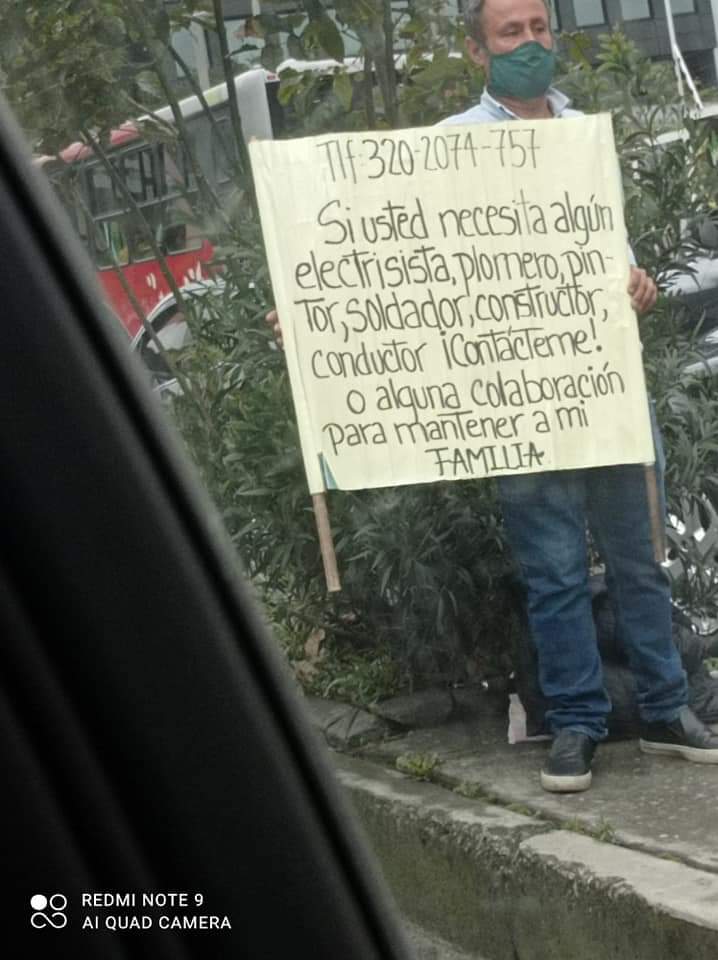 Tlf:320-2074-757
Si usted necesita algún
electrisista, plomero, pin-
tor, soldador, constructor,
conductor ¡Contácteme!
o alguna colaboración
para mantener a mi
FAMILIA.
REDMI NOTE 9
AI QUAD CAMERA